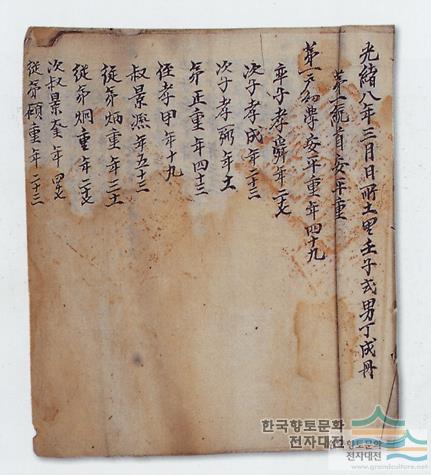 光緖八年三月日所土里壬子式男丁成冊
第一統首安平重
第一戶幼學安平重年四十九
率子孝舜年二七
次子孝成年二十三
次子孝弼年十
弟正重年四十三
侄孝甲年十九
叔景濂年五十三
從弟炳重年三十
從弟炯重年二七
次叔景奎年四七
從弟碩重年二十三
한국향토문화
전자대전
향토문화
전자대전
www.grandculture.net